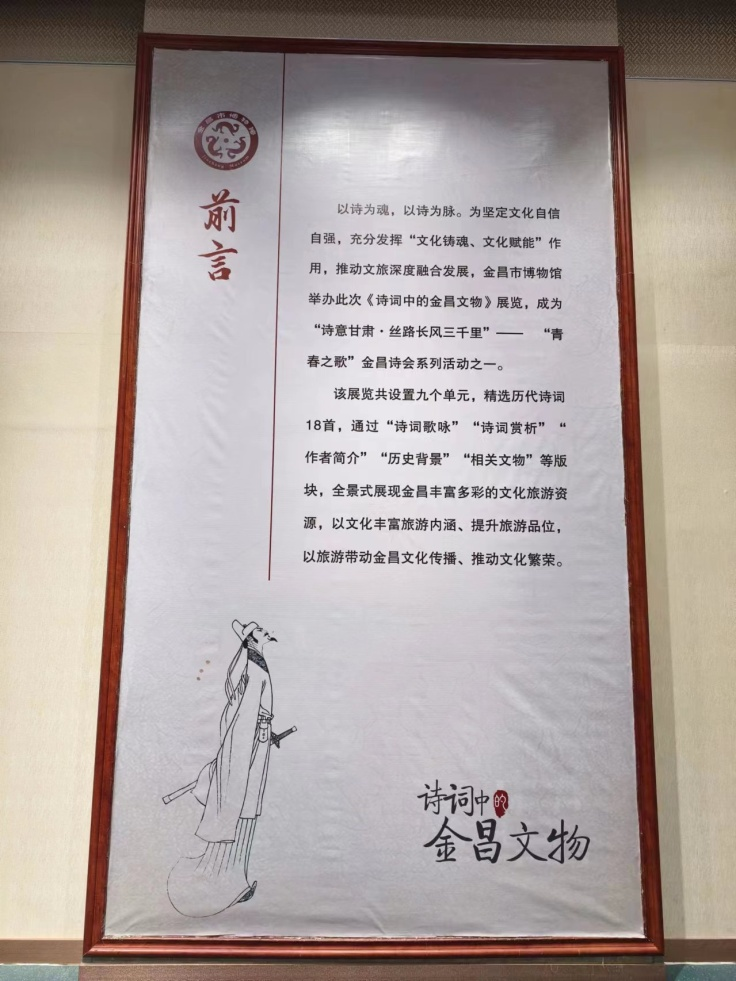 金昌市博物馆
前言
以诗为魂，以诗为脉。为坚定文化自信
自强，充分发挥“文化铸魂、文化赋能”作
用，推动文旅深度融合发展，金昌市博物馆
举办此次《诗词中的金昌文物》展览，成为
“诗意甘肃·丝路长风三千里”—— “青
春之歌”金昌诗会系列活动之一。
该展览共设置九个单元，精选历代诗词
18首，通过“诗词歌咏”“诗词赏析”“
作者简介”“历史背景”“相关文物”等版
块，全景式展现金昌丰富多彩的文化旅游资
源，以文化丰富旅游内涵、提升旅游品位，
以旅游带动金昌文化传播、推动文化繁荣。
诗词中的
金昌文物